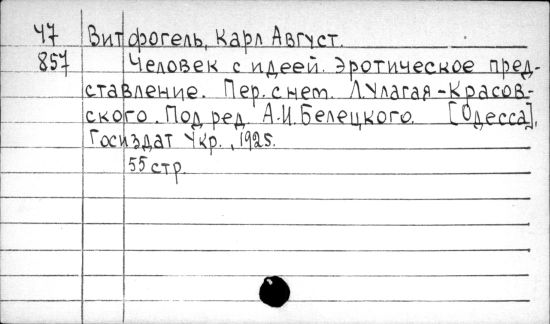 47 Витфогель, Карл Август.
857 Человек с идеей. Эротическое пред-
ставление. Пер. с нем. Л.Улагая-Красов-
ского. Под ред. А.И. Белецкого. [Одесса],
Госиздат Укр., 1925.
55 стр.